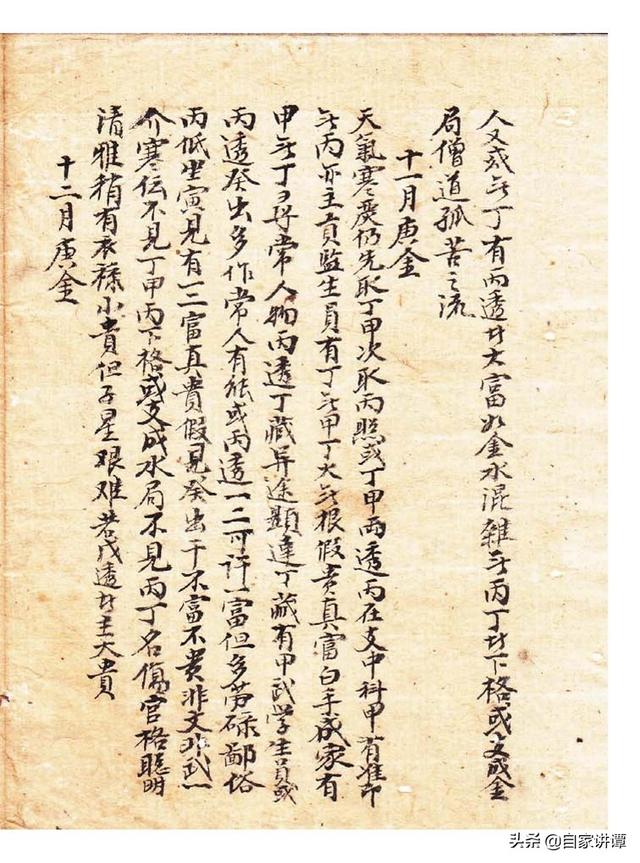 人又或无丁有丙透者大富如金水混雜无丙丁者下格或支成金
局僧道孤苦之流
十一月庚金
天氣寒嚴仍先取丁甲次取丙照或丁甲兩透丙在支中科甲有准即
无丙亦主貢監生員有丁无甲丁火无根假貴真富白手成家有
甲无丁尋常人物丙透丁藏异途顯達丁藏有甲武学生員或
丙透癸出多作常人有能或丙透一二可許一富但多劳碌鄙俗
丙低坐寅見有一二富真貴假見癸出干不富不貴非文非武一
介寒不見丁甲丙下格或支成水局不見丙丁名傷官格聰明
清雅稍有衣祿小貴但子星艱难若戊透者主大貴
十二月庚金
头条 @自家讲谭